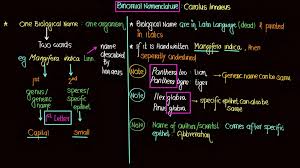 Binomial Nomenclature
Carolus linnaeus
* One Biological Name : one organism
Two words
eg Mangifera indica Linn.
1st
2nd
name described by linnaeus
genus/ generic name
Species/ specific epithet
1st Letter
Capital
Small
* Biological Name are in Latin Language (dead) & printed in italics
* if it is Handwritten Mangifera indica, then separately underlined
Note
Panthera leo lion
Panthera tigris tiger
Generic name can be same
Note
Ilex glabra
Rhus glabra
specific epithet can also be Same
Note
Name of author/scientist Comes after specific epithet
Abbreviation